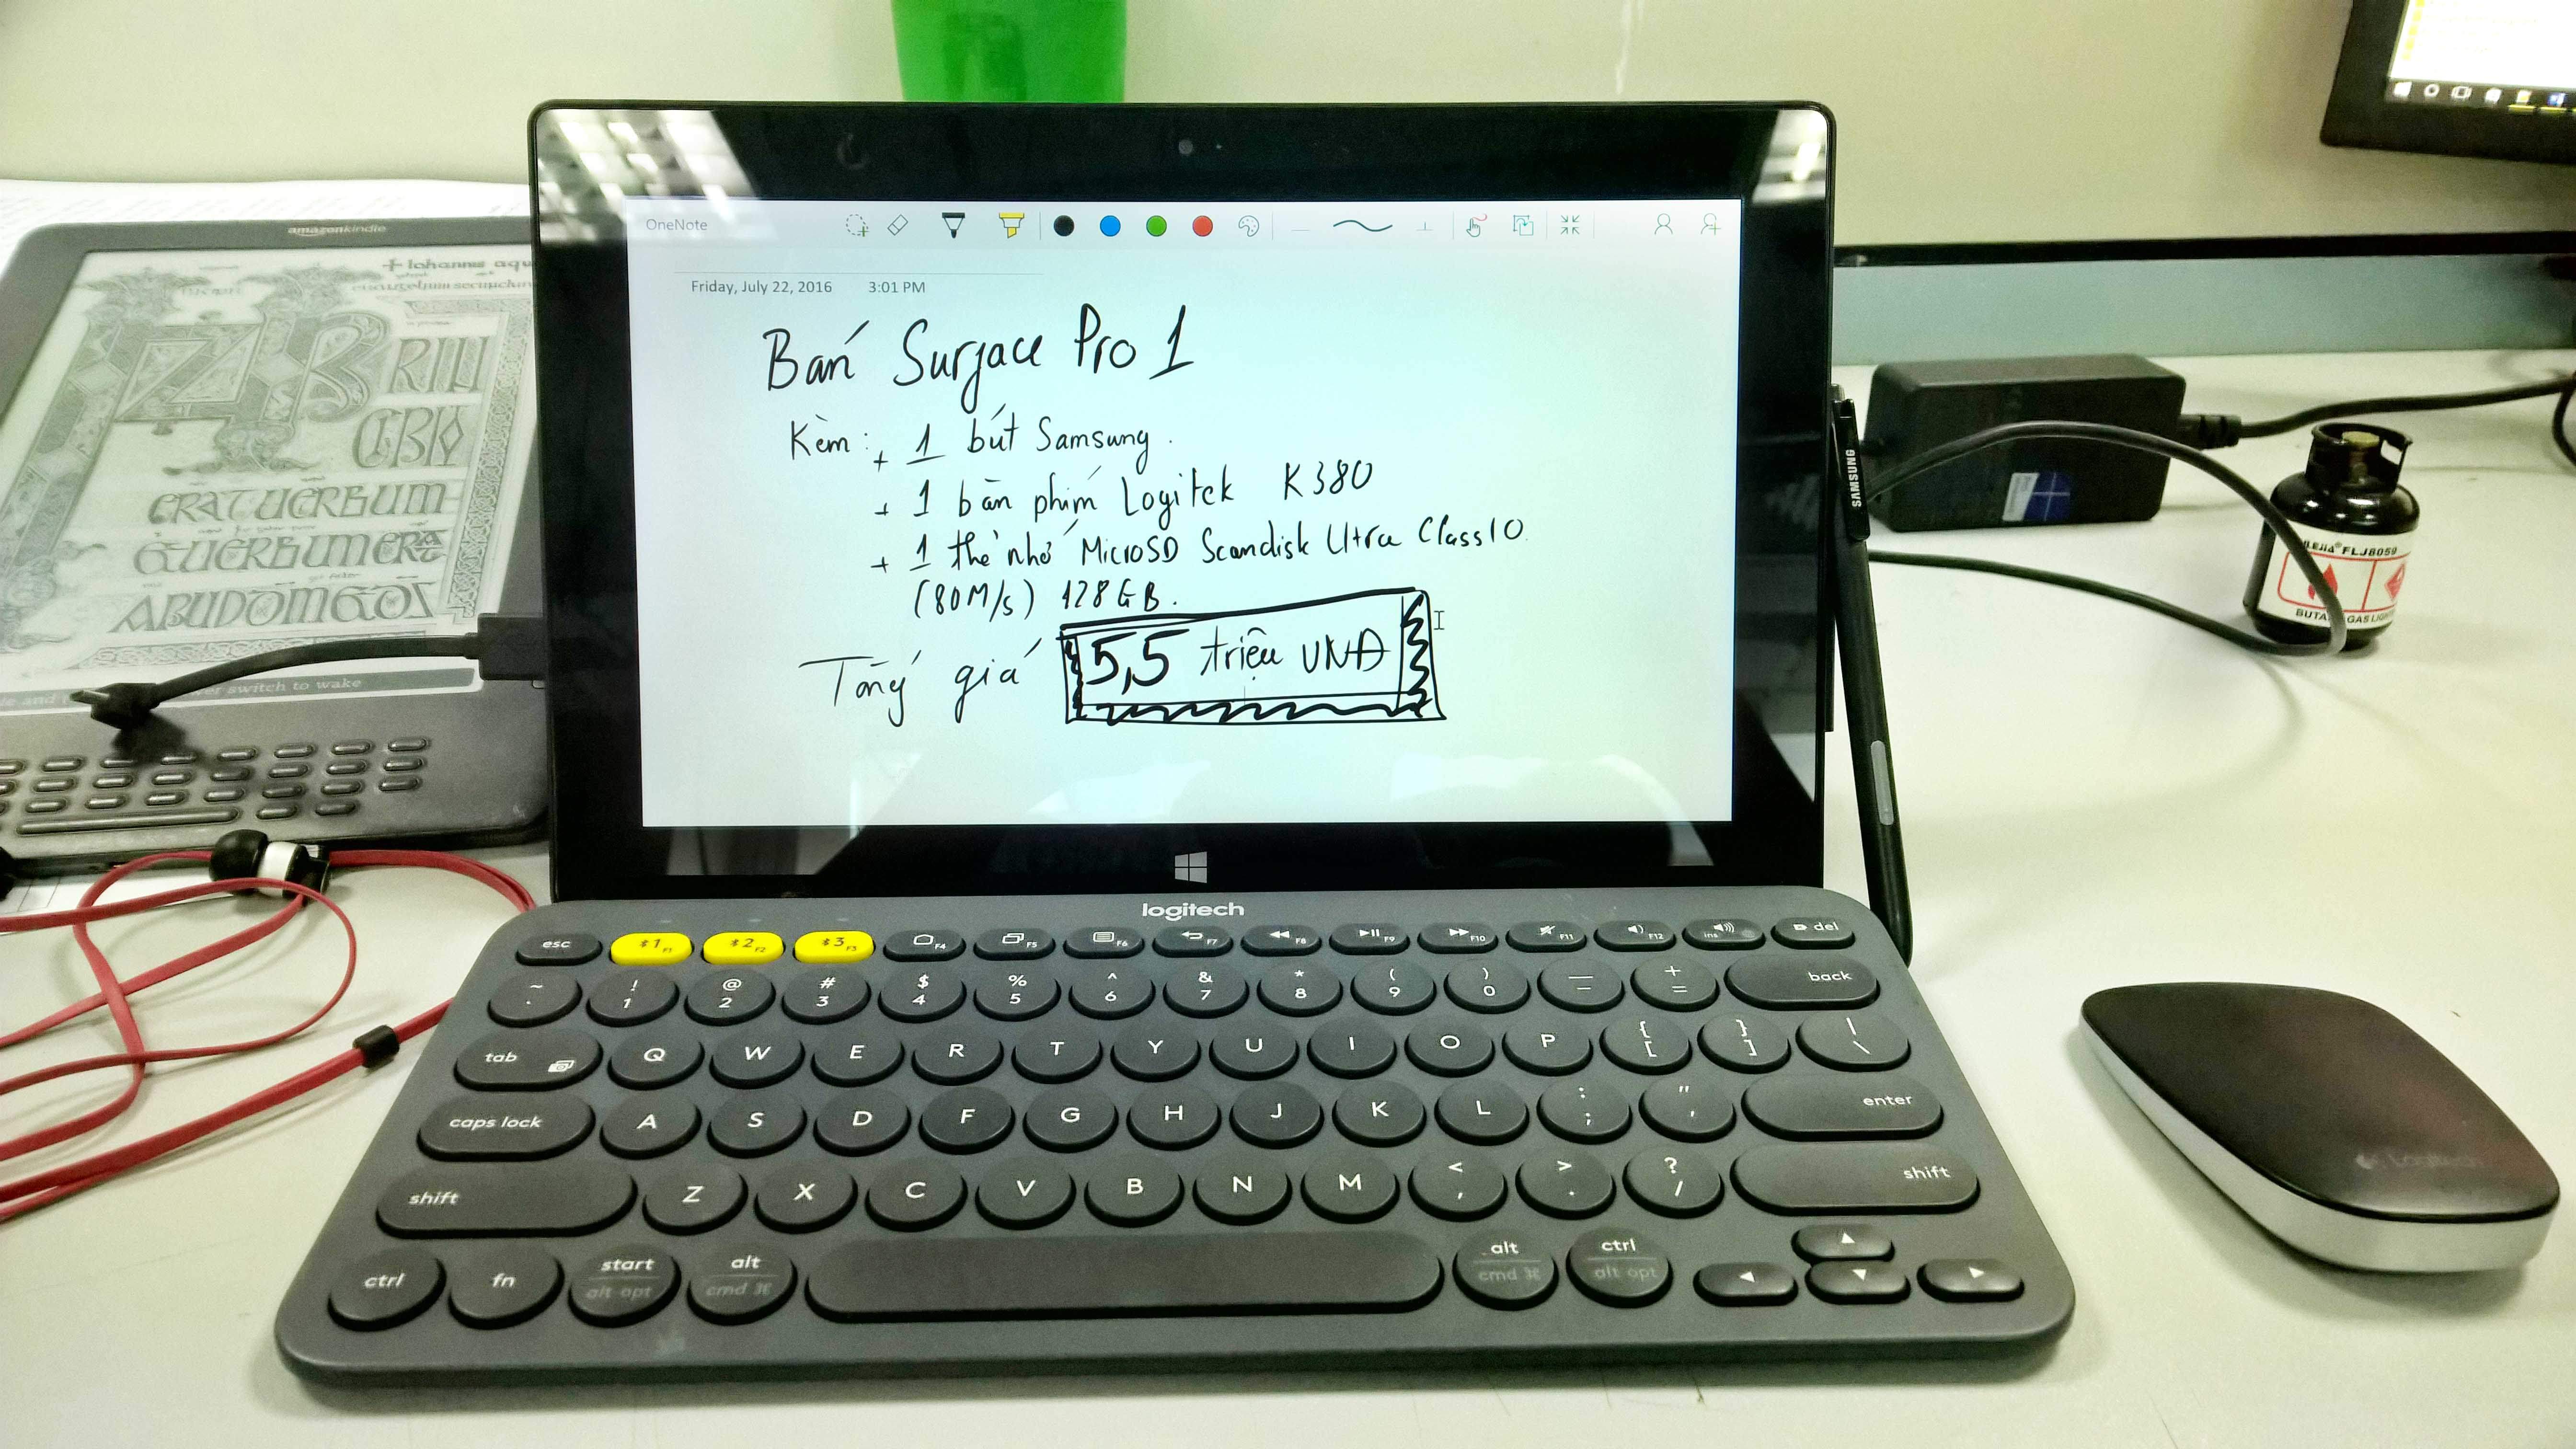 amazonkindle
+ Iohannis aqu
RIN
CBY
ERATUERBUM
&UERBUMERA
er switch to wake
OneNote
Friday, July 22, 2016 3:01 PM
Bán Surface Pro 1
Kèm: + 1 bút Samsung.
+ 1 bàn phím Logitek K380
+ 1 thẻ nhớ MicroSD Scandisk Ultra Class10.
(80M/s) 128GB.
Tổng giá 5,5 triệu VNĐ
SAMSUNG
FLJ8059
BUTA GAS LIGH
logitech
esc 1 F1 2 F2 3 F3 F4 F5 F6 F7 F8 F9 F10 F11 F12 ins del
~ ! @ # $ % ^ & * ( ) — +
` 1 2 3 4 5 6 7 8 9 0 – = back
tab Q W E R T Y U I O P { [ } ] | \
caps lock A S D F G H J K L : ; " ' enter
shift Z X C V B N M < , > . ? / shift
ctrl fn start alt alt ctrl
alt opt cmd ⌘ cmd ⌘ alt opt
Logitech